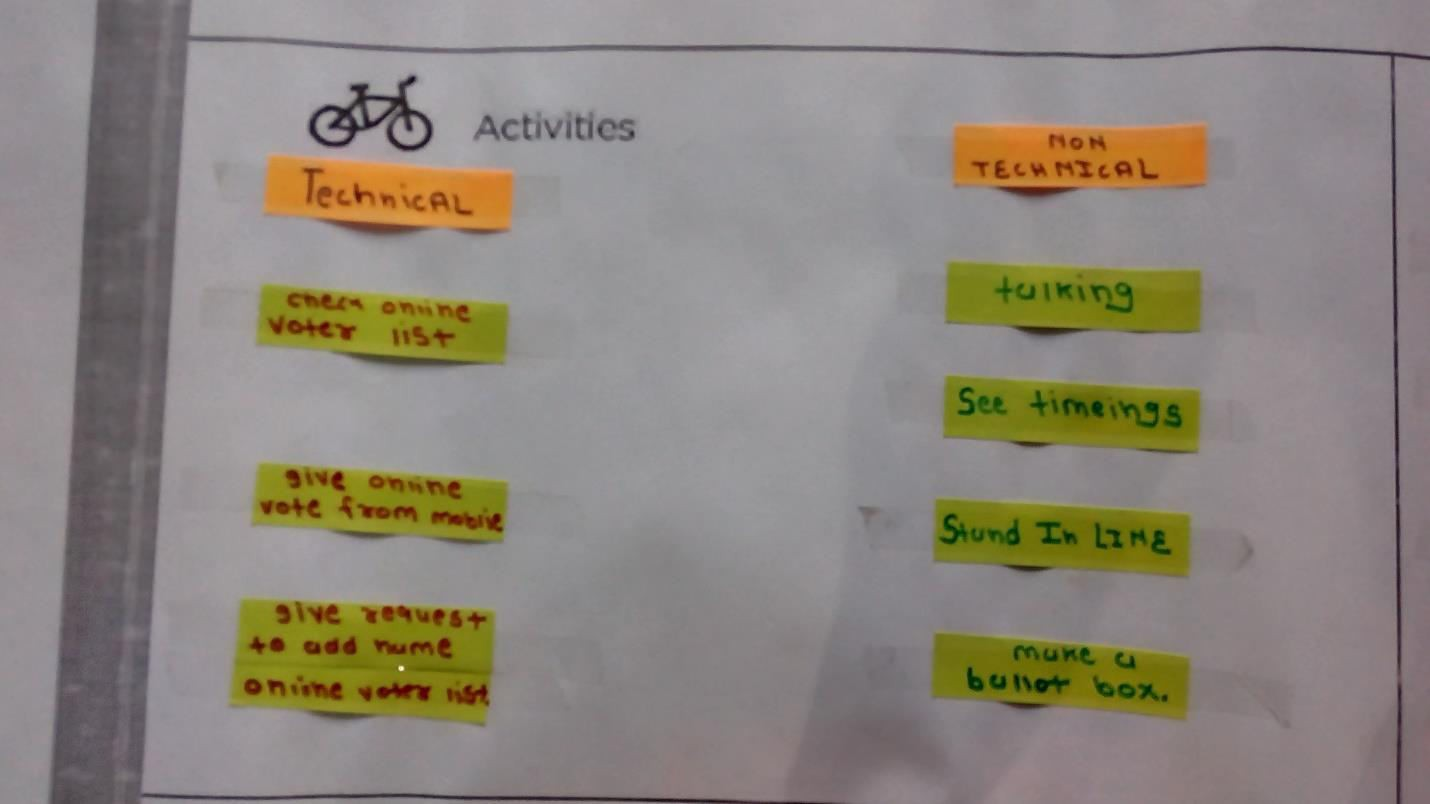 Activities
Technical
check online
voter list
give online
vote from mobile
give request
to add name
online voter list
NON
TECHNICAL
talking
See timeings
Stand In LINE
make a
ballot box.